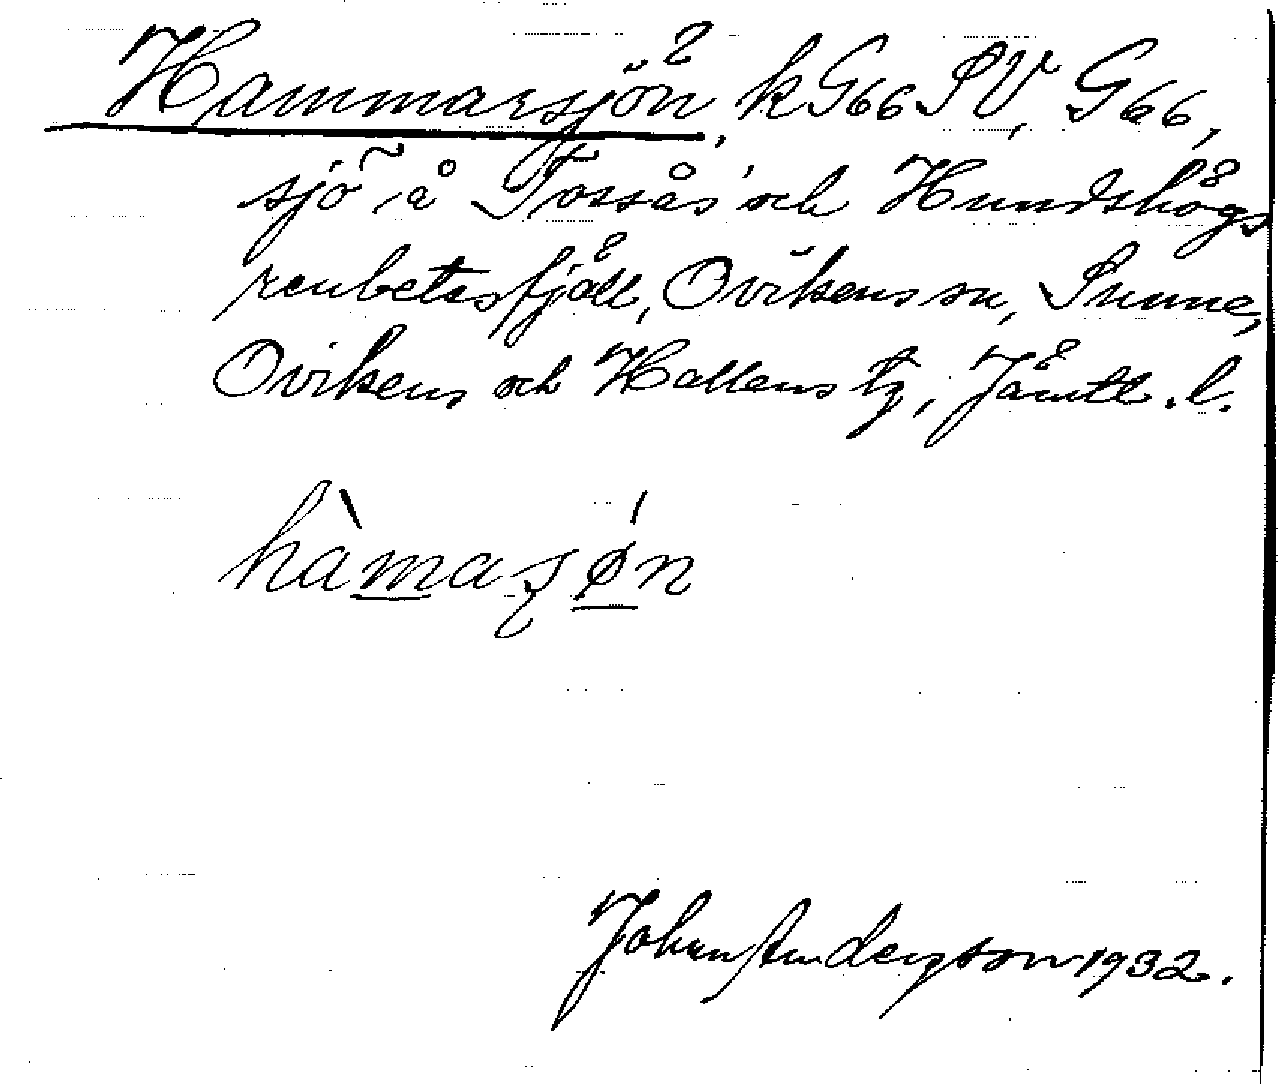 Hammarsjön, k G66 SV, G66,
sjö å Tossås och Hundshögs
renbetesfjäll, Ovikens sn, Sunne,
Ovikens och Hallens tg, Jämtl. l.
hàmaʂǿn
Johan Anderzson 1932.